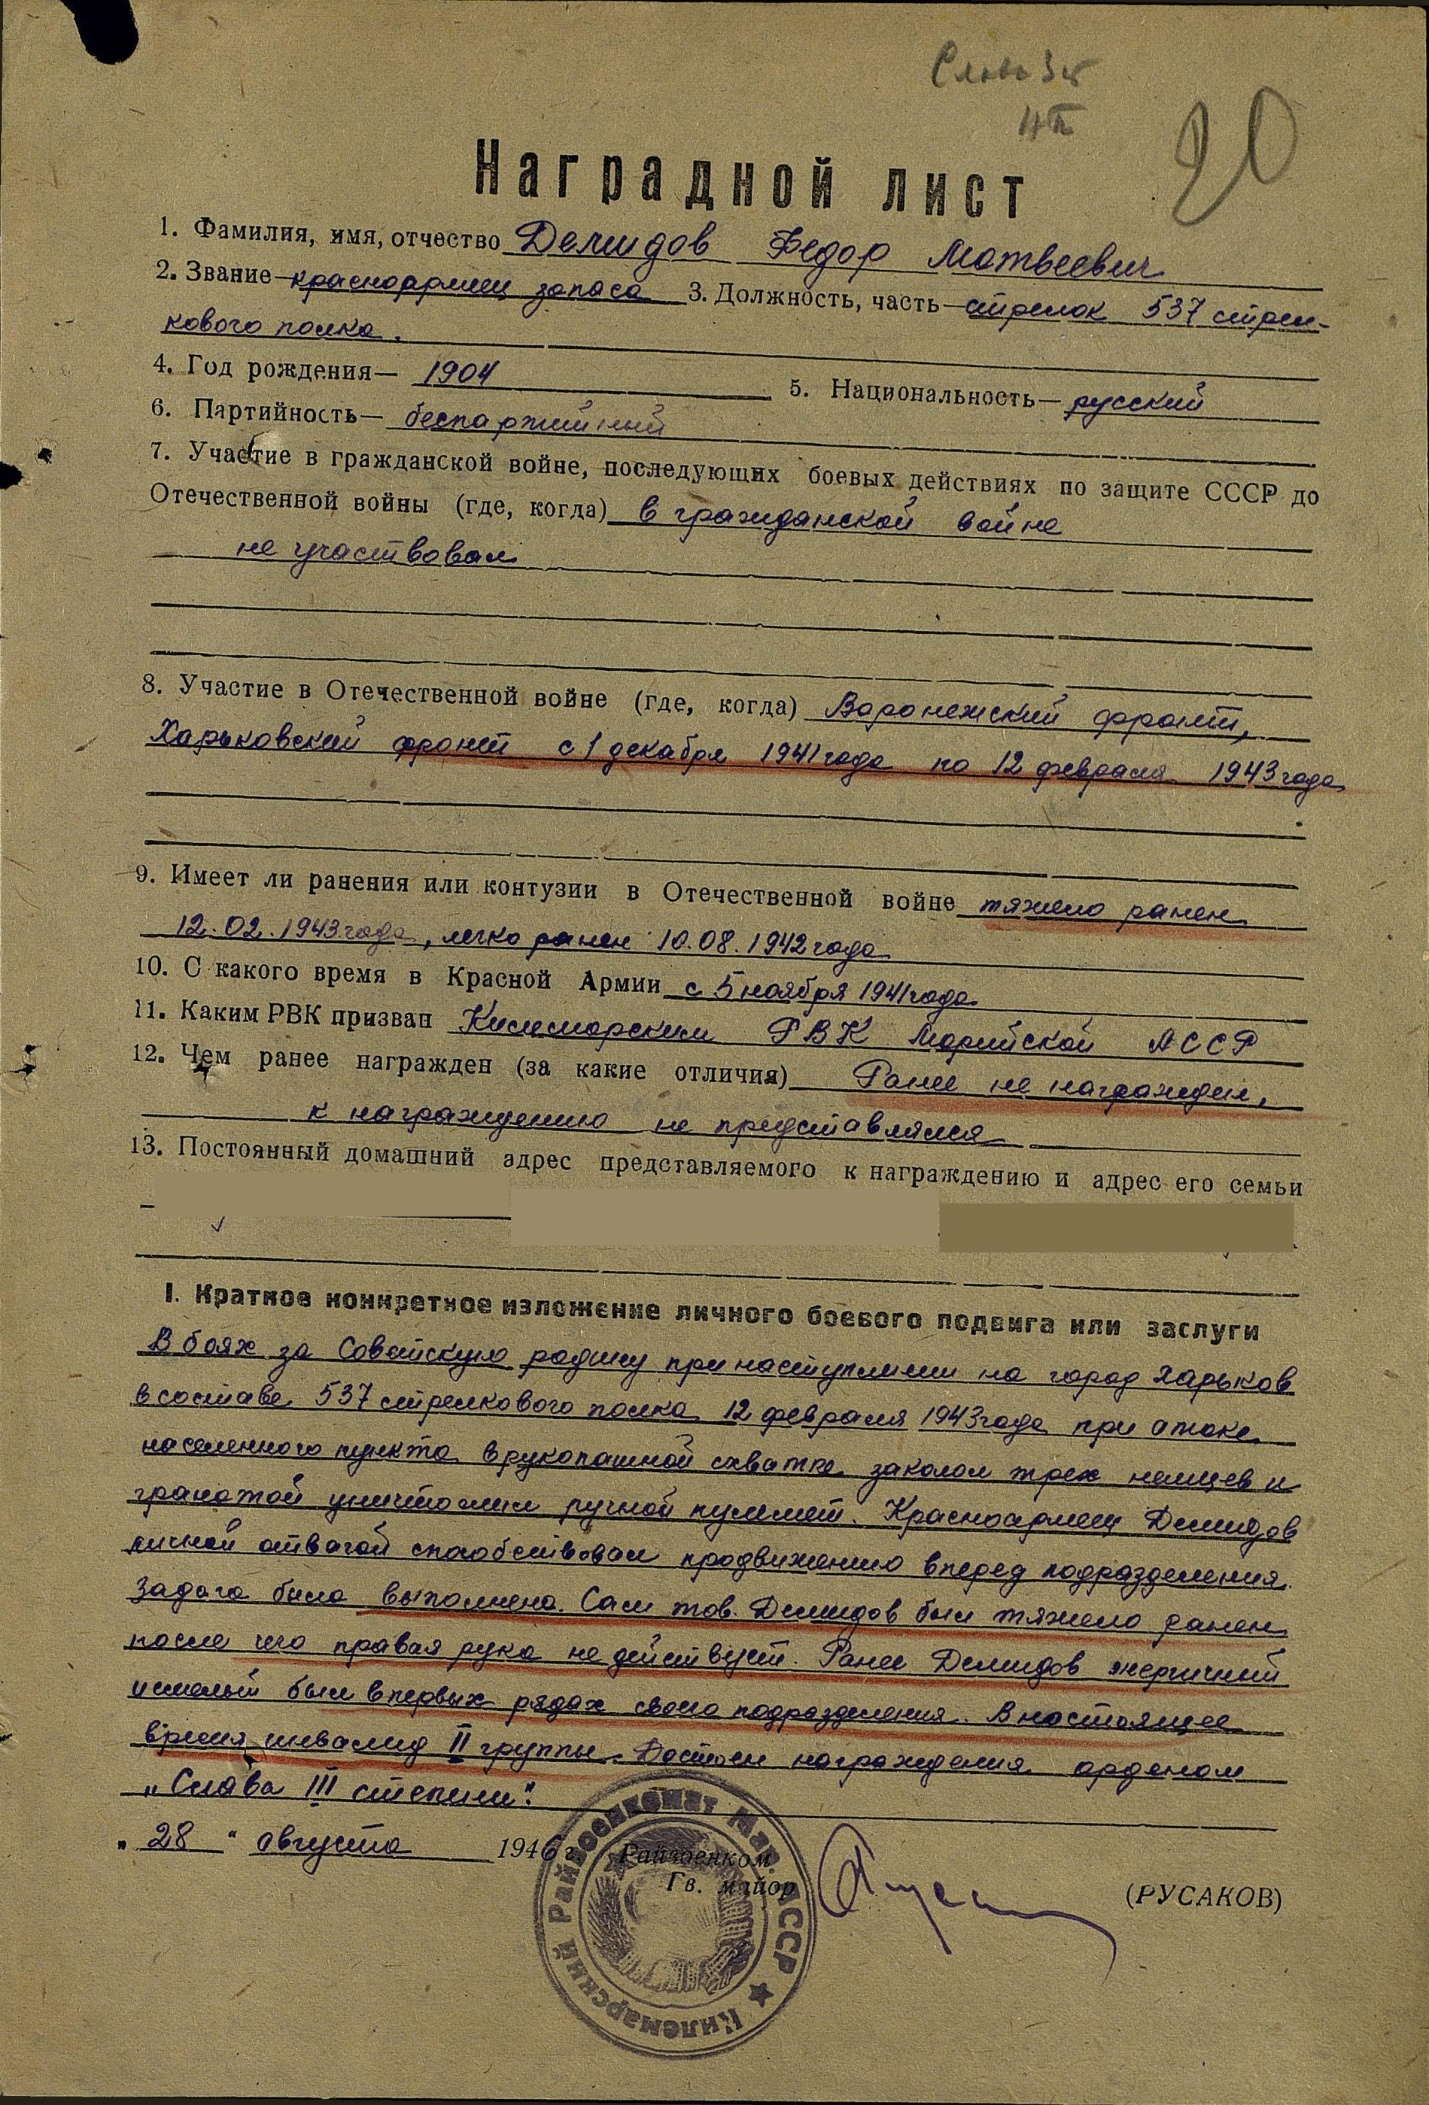 Слава 3 ст
20
Наградной лист
1. Фамилия, имя, отчество Демидов Федор Матвеевич
2. Звание — красноармеец запаса 3. Должность, часть — стрелок 537 стрел-
кового полка.
4. Год рождения — 1904 5. Национальность — русский
6. Партийность — беспартийный
7. Участие в гражданской войне, последующих боевых действиях по защите СССР до
Отечественной войны (где, когда) в гражданской войне
не участвовал
8. Участие в Отечественной войне (где, когда) Воронежский фронт,
Харьковский фронт с 1 декабря 1941 года по 12 февраля 1943 года
9. Имеет ли ранения или контузии в Отечественной войне тяжело ранен
12.02.1943 года, легко ранен 10.08.1942 года
10. С какого время в Красной Армии с 5 ноября 1941 года
11. Каким РВК призван Килемарским РВК Марийской АССР
12. Чем ранее награжден (за какие отличия) Ранее не награжден,
к награждению не представлялся
13. Постоянный домашний адрес представляемого к награждению и адрес его семьи
I. Краткое конкретное изложение личного боевого подвига или заслуги
В боях за Советскую родину при наступлении на город Харьков
в составе 537 стрелкового полка 12 февраля 1943 года при атаке
населенного пункта в рукопашной схватке заколол трех немцев и
гранатой уничтожил ручной пулемет. Красноармеец Демидов
личной отвагой способствовал продвижению вперед подразделения.
Задача была выполнена. Сам тов. Демидов был тяжело ранен
после чего правая рука не действует. Ранее Демидов энергичный
и смелый был в первых рядах своего подразделения. В настоящее
время инвалид II группы. Достоин награждения орденом
„Слава III степени".
„28" августа 1946 г. Райвоенком
Гв. майор (РУСАКОВ)
Килемарский Райвоенкомат Мар. АССР